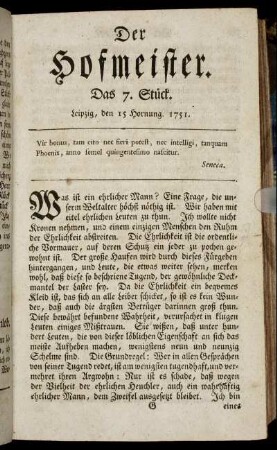 Der
Hofmeister.
Das 7. Stück.
Leipzig, den 15 Hornung. 1751.
Vir bonus, tam cito nec fieri potest, nec intelligi, tanquam
Phoenix, anno semel quingentesimo nascitur.
Seneca.
Was ist ein ehrlicher Mann? Eine Frage, die un-
serm Weltalter höchst nöthig ist. Wir haben mit
eitel ehrlichen Leuten zu thun. Ich wollte nicht
Kronen nehmen, und einem einzigen Menschen den Ruhm
der Ehrlichkeit abstreiten. Die Ehrlichkeit ist die ordentli-
che Vormauer, auf deren Schutz ein jeder zu pochen ge-
wohnt ist. Der große Haufen wird durch dieses Fürgeben
hintergangen, und Leute, die etwas weiter sehen, merken
wohl, daß diese so beschriene Tugend, der gewöhnliche Deck-
mantel der Laster sey. Da die Ehrlichkeit ein bequemes
Kleid ist, das sich an alle Leiber schicket, so ist es kein Wun-
der, daß auch die ärgsten Betrüger darinnen groß thun.
Diese bewährt befundene Wahrheit, verursachet in klugen
Leuten einiges Mißtrauen. Sie wißen, daß unter hun-
dert Leuten, die von dieser löblichen Eigenschaft an sich das
meiste Aufheben machen, wenigstens neun und neunzig
Schelme sind. Die Grundregel: Wer in allen Gesprächen
von seiner Tugend redet, ist am wenigsten tugendhaft, und ver-
mehret ihren Argwohn: Nur ist es schade, daß wegen
der Vielheit der ehrlichen Heuchler, auch ein wahrhaftig
ehrlicher Mann, dem Zweifel ausgesetzt bleibet. Ich bin
G eines